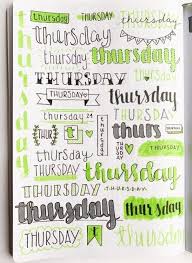 THURSDAY
thursday
THURSDAY
thursday
thursday
thursday
THURSDAY
THURSDAY
thursday
THURSDAY
thursday
thursday
thursday 24
thursday
thursday
THURSDAY
THURSDAY
thursday
THURSDAY
thursday
THURSDAY
thursday
thursday
thursday
THURSDAY
t
thursday